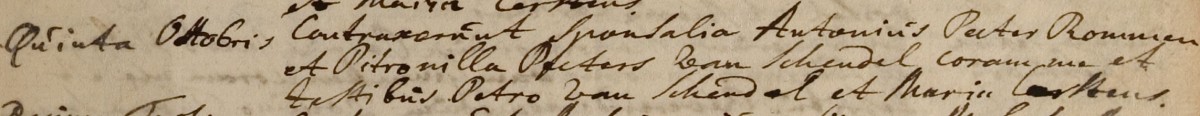 et Maria Cerstens.
Quinta Octobris Contraxerunt Sponsalia Antonius Peeter Rommen
et Pitronilla Peeters van Schendel coram me et
testibus Petro van Schendel et Maria Cerstens.